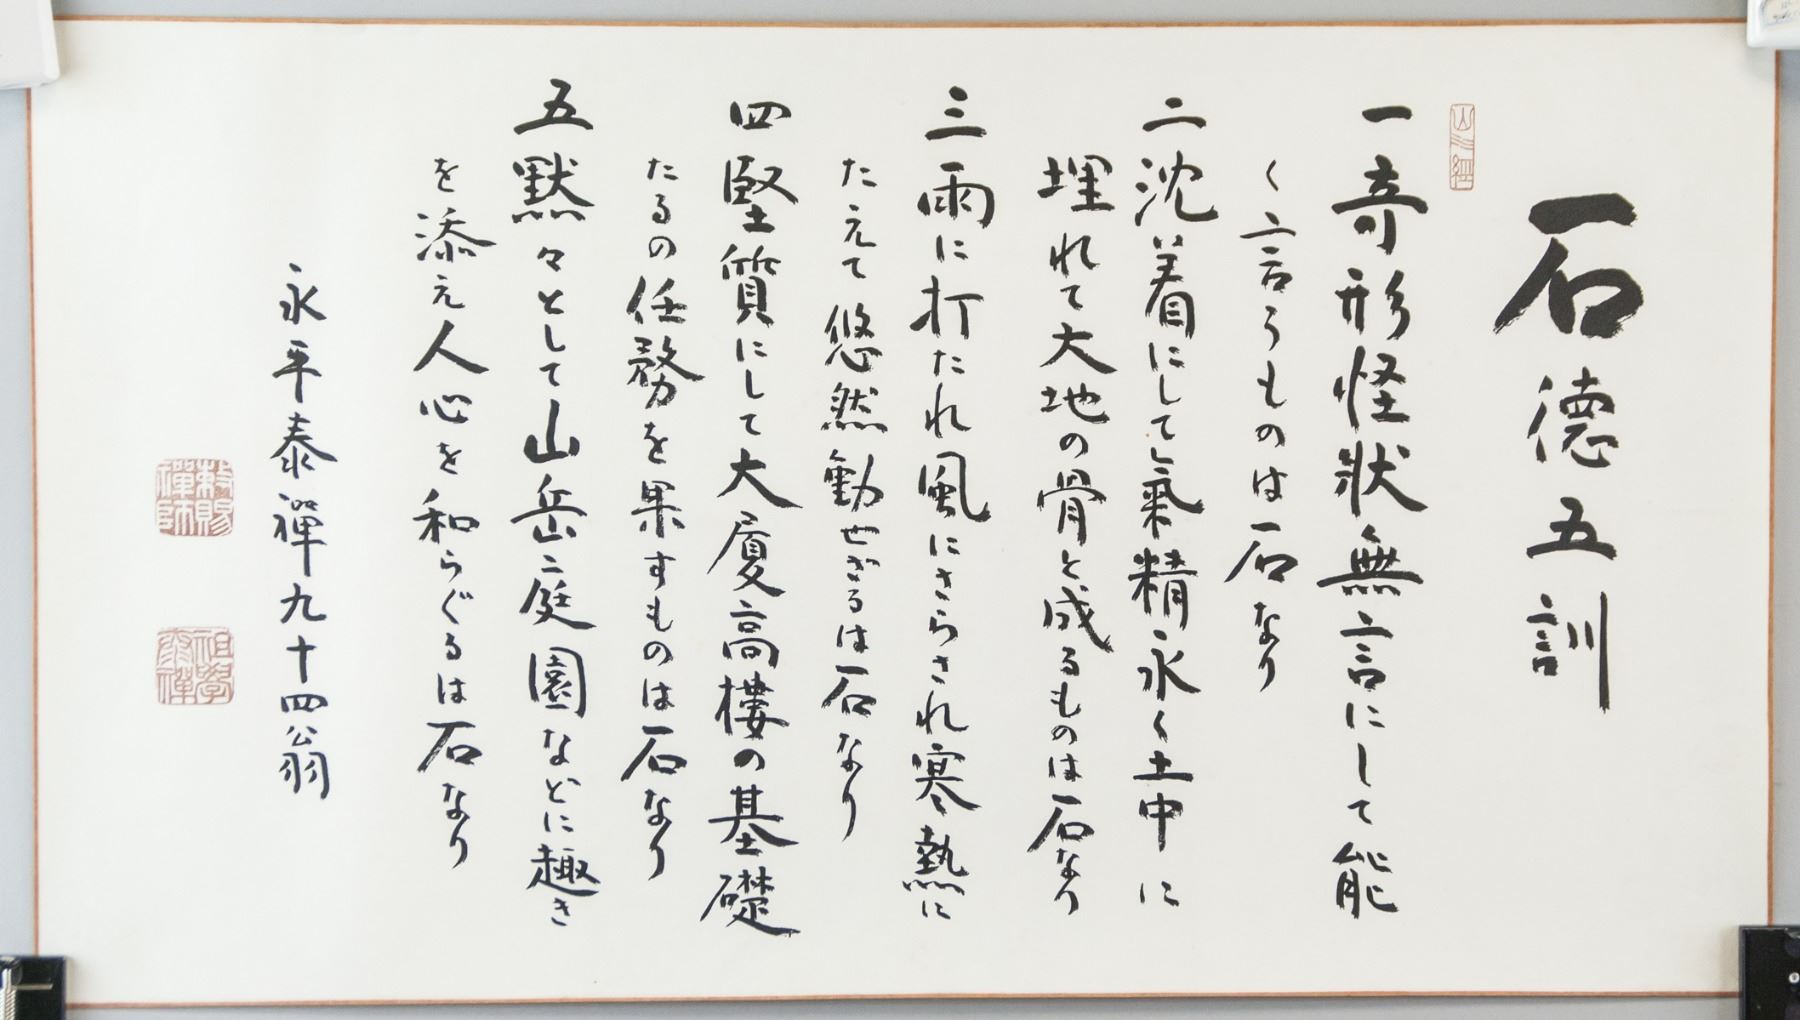 石德五訓
山水經
一奇形怪狀無言にして能
く言うものは石なり
二沈着にして氣精永く土中に
埋れて大地の骨と成るものは石なり
三雨に打たれ風にさらされ寒熱に
たえて悠然動せざるは石なり
四堅質にして大厦高樓の基礎
たるの任務を果すものは石なり
五黙々として山岳ニ庭園などに趣き
を添え人心を和らぐるは石なり
永平泰禪九十四翁
勅賜禪師